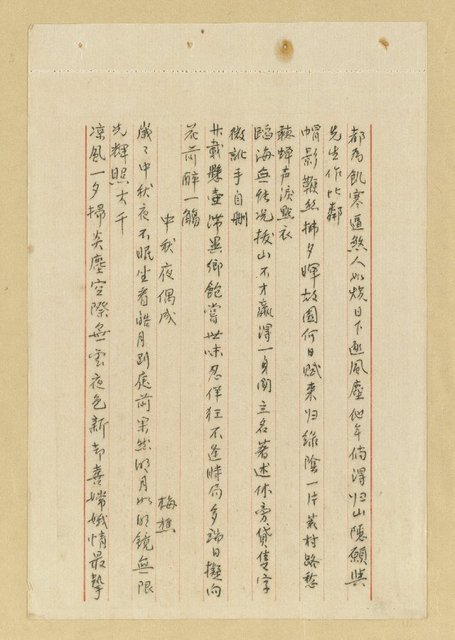 都為飢寒逼煞人如燒日下逐風塵他年倘得归山隱願與
先生作比鄰
帽影鞭絲拂夕暉故園何日賦東归綠陰一片荒村路愁
聽蟬声淚點衣
蹈海無緣况拔山不才贏得一身閒立名著述休旁貸隻字
微訛手自刪
廿載懸壺滯異鄉飽嘗世味忍佯狂不逢時局多端日擬向
花前醉一觴
中秋夜偶成 梅樵
歲々中秋夜不眠坐看皓月到庭前果然明月如明鏡無限
光輝照大千
凉風一夕掃炎塵空際無雲夜色新却喜嫦娥情最摯